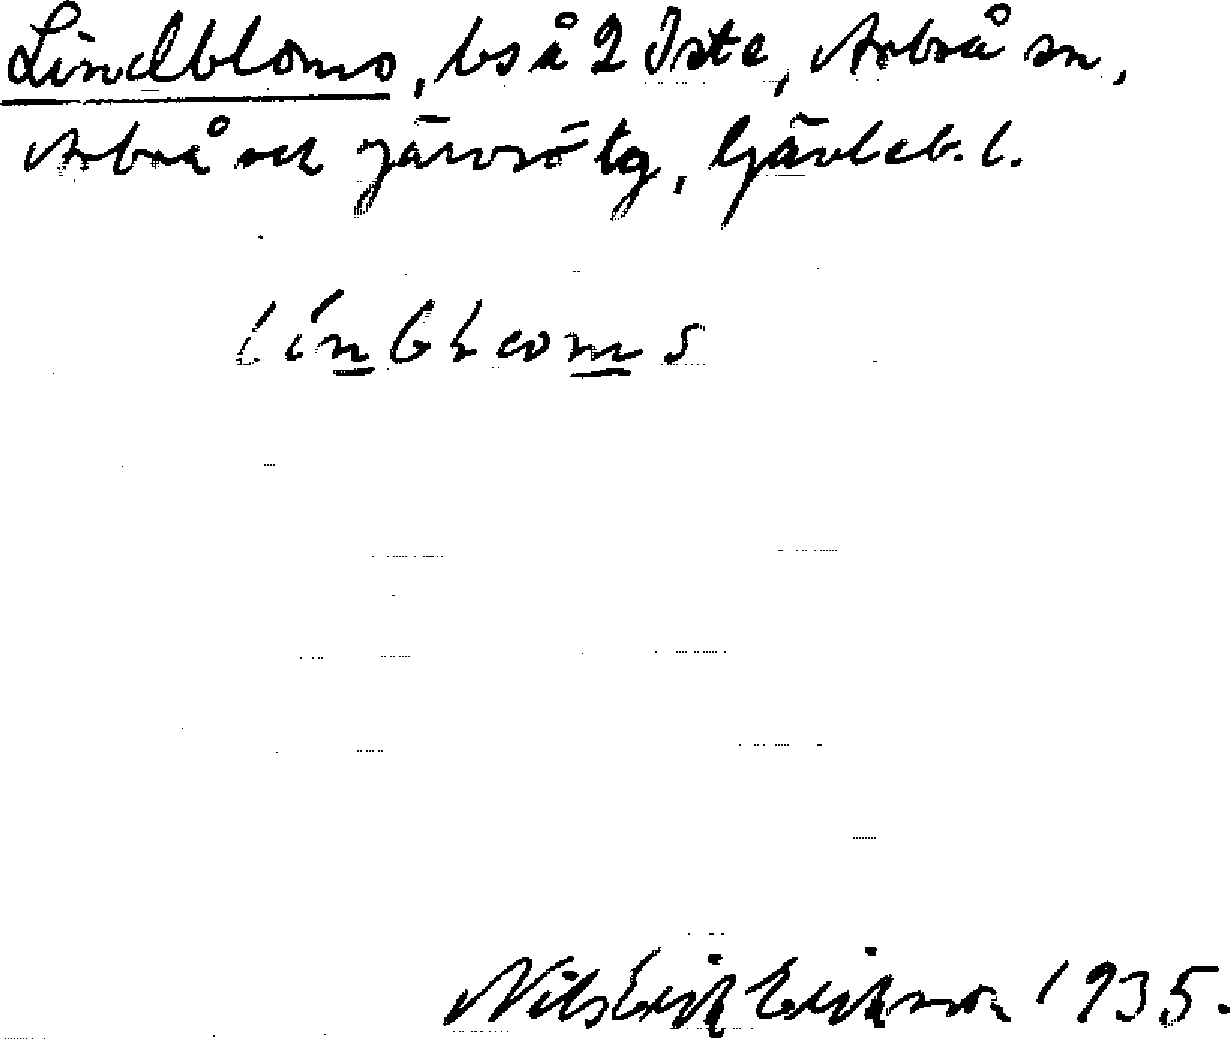 Lindbloms, bs å 2 Iste, Arbrå sn,
Arbrå och Järvsö tg, Gävleb. l.
Nils Erik Erikson 1935.